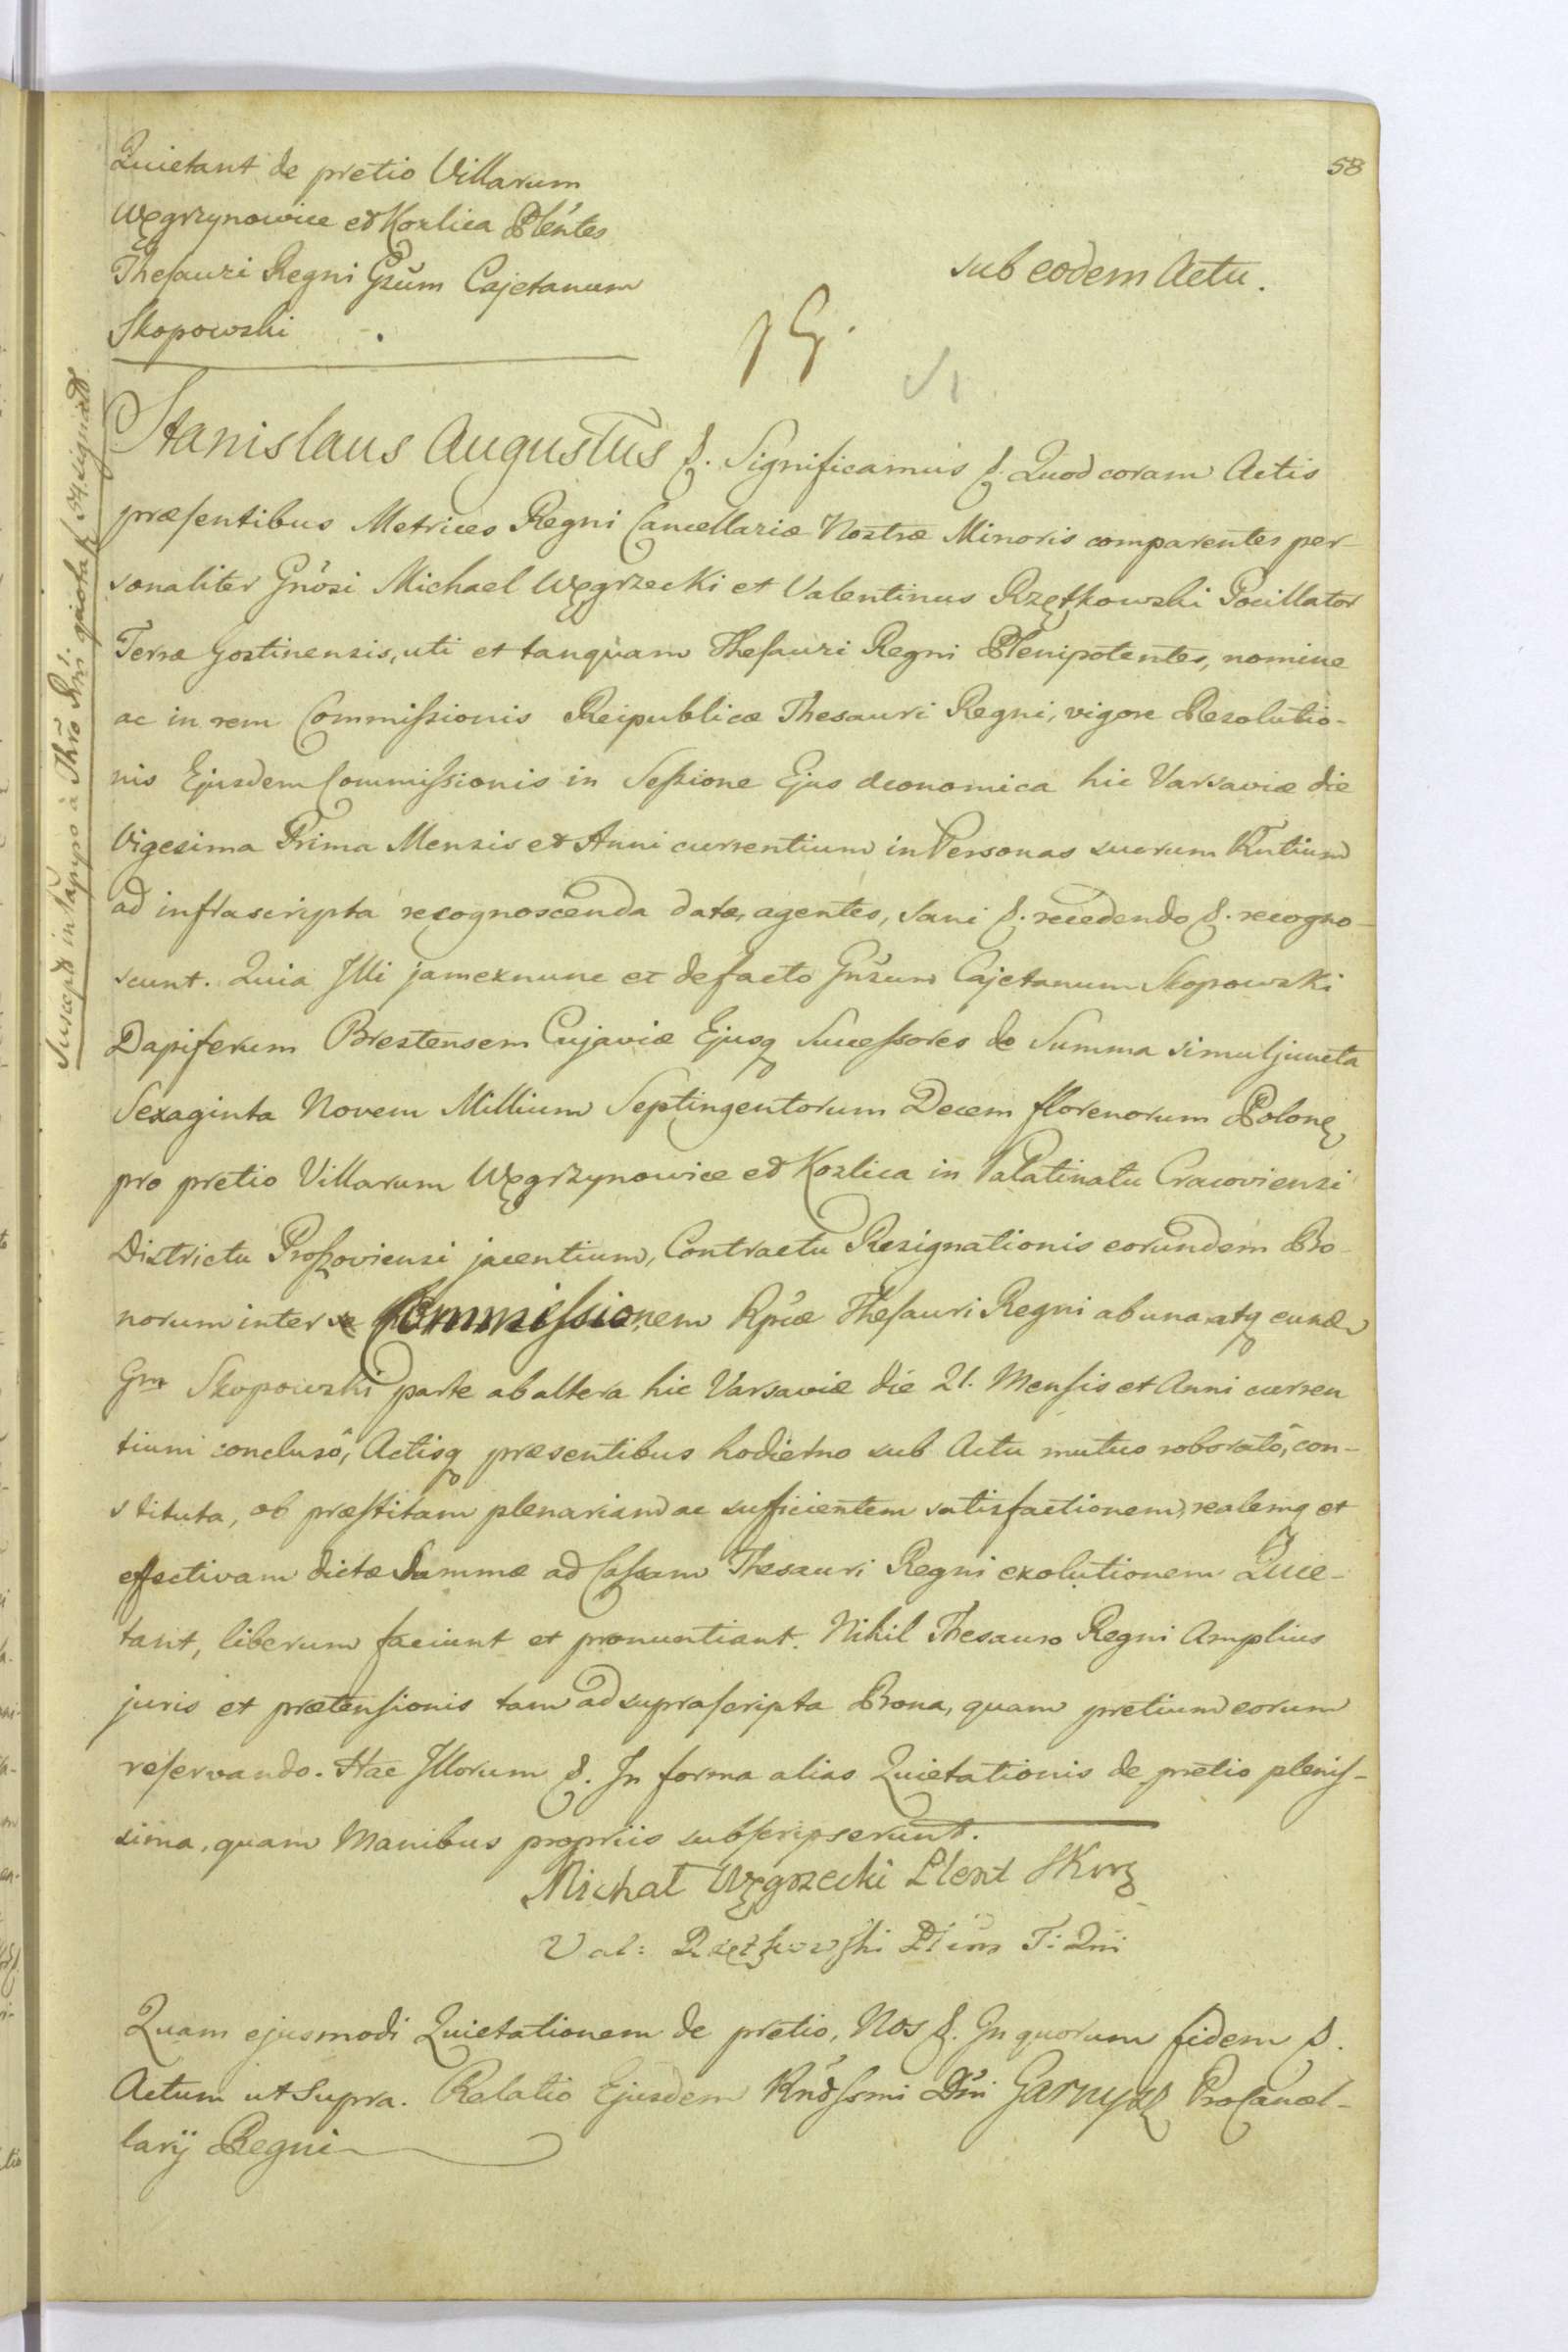 58
Quietant de pretio Villarum
Węgrzynowice et Kozlica Plēntes
Thesauri Regni Gsūm Cajetanum
Skopowski
sub eodem Actu.
Stanislaus Augustus &. Significamus &. Quod coram Actis
præsentibus Metrices Regni Cancellariæ Nostræ Minoris comparentes per-
sonaliter Gnōsi Michael Węgrzecki et Valentinus Rzętkowski Pocillator
Terræ Gostinensis, uti et tanquam Thesauri Regni Plenipotentes, nomine
ac in rem Commissionis Reipublicæ Thesauri Regni, vigore Resolutio-
nis Ejusdem Commissionis in Sessione Ejus œconomica hic Varsaviæ die
Vigesima Prima Mensis et Anni currentium in Personas suorum
ad infrascripta recognoscenda datæ, agentes, sani &. recedendo &. recogno-
scunt. Quia Illi jam exnunc et defacto Gnsum Cajetanum Skopowski
Dapiferum Brestensem Cujaviæ Ejusq Successores de Summa simul juncta
Sexaginta Novem Millium Septingentorum Decem florenorum Polonę
pro pretio Villarum Węgrzynowice et Kozlica in Palatinatu Cracoviensi
Districtu Proszoviensi jacentium, Contractu Resignationis eorundem Bo-
norum inter se Commissionem Rpcæ Thesauri Regni ab una, atq eundē
Gm Skopowski parte ab altera hic Varsaviæ die 21. Mensis et Anni curren
tium conclusô, Actisq præsentibus hodierno sub Actu mutuo roboratô, con-
stituta, ob præstitam plenariam ac sufficientem satisfactionem, realemq et
effectivam dictæ Summæ ad Cassam Thesauri Regni exolutionem Quie-
tant, liberum faciunt et pronuntiant. Nihil Thesauro Regni Amplius
juris et prætensionis tam ad suprascripta Bona, quam pretium eorum
reservando. Hac Illorum &. In forma alias Quietationis de pretio plenis-
sima, quam Manibus propriis subscripserunt.
Michał Węgrzecki Plent SKrę
Val: Rzętkowski
Quam ejusmodi Quietationem de pretio, Nos &. In quorum fidem &.
Actum ut Supra. Relatio Ejusdem Rnđssmi Dni Garnysz ProCancel-
larij Regni
Suscept in Papyro à Thrō Rni